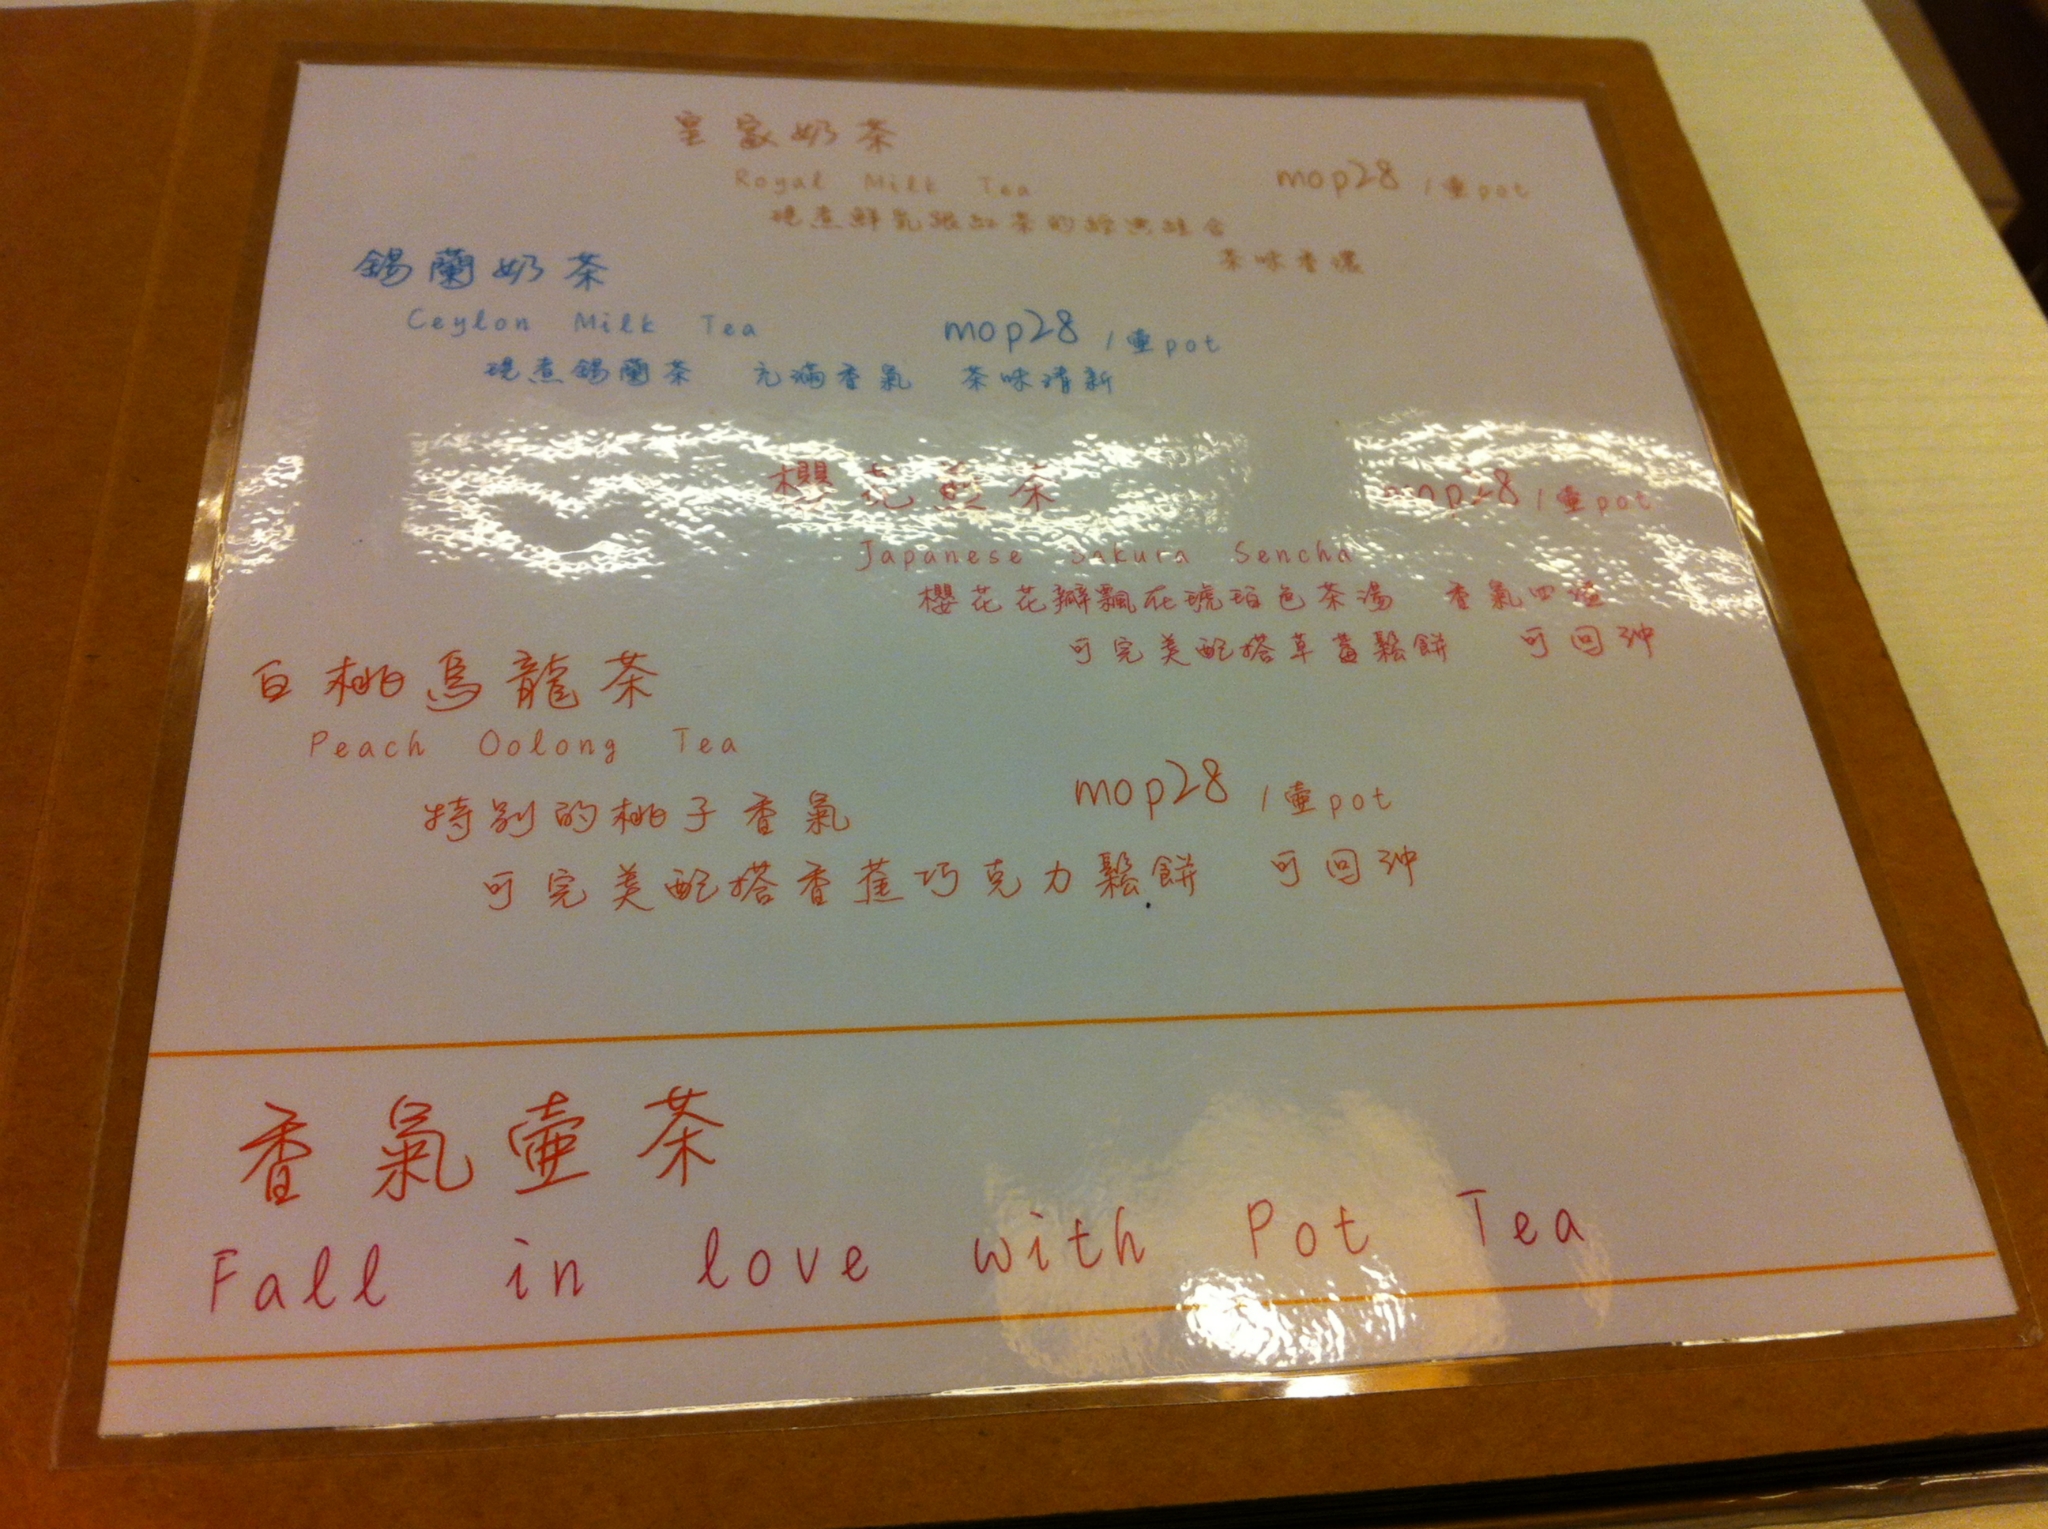 皇家奶茶
Royal Milk Tea mop28 /壺pot
現煮鮮乳跟紅茶的經典組合
茶味香濃
錫蘭奶茶
Ceylon Milk Tea mop28 /壺pot
現煮錫蘭茶 充滿香氣 茶味清新
櫻花煎茶 mop28 /壺pot
Japanese Sakura Sencha
櫻花花瓣飄在琥珀色茶湯 香氣四溢
可完美配搭草莓鬆餅 可回沖
白桃烏龍茶
Peach Oolong Tea
特別的桃子香氣 mop28 /壺pot
可完美配搭香蕉巧克力鬆餅 可回沖
香氣壺茶
Fall in love with Pot Tea